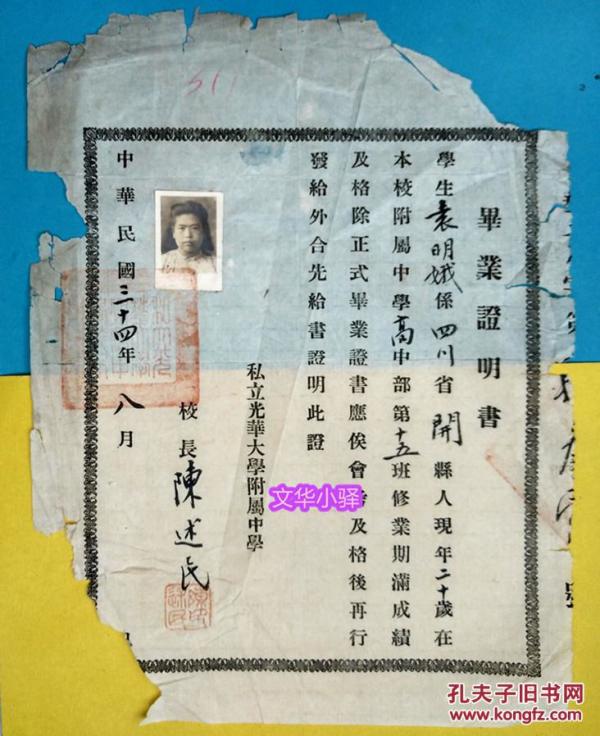 511
畢業證明書
學生袁明娥係四川省開縣人現年二十歲在
本校附屬中學高中部第十五班修業期滿成績
及格除正式畢業證書應俟會及格後再行
發給外合先給書證明此證
私立光華大學附屬中學
校長陳述民
中華民國三十四年八月
文华小驿
孔夫子旧书网
www.kongfz.com